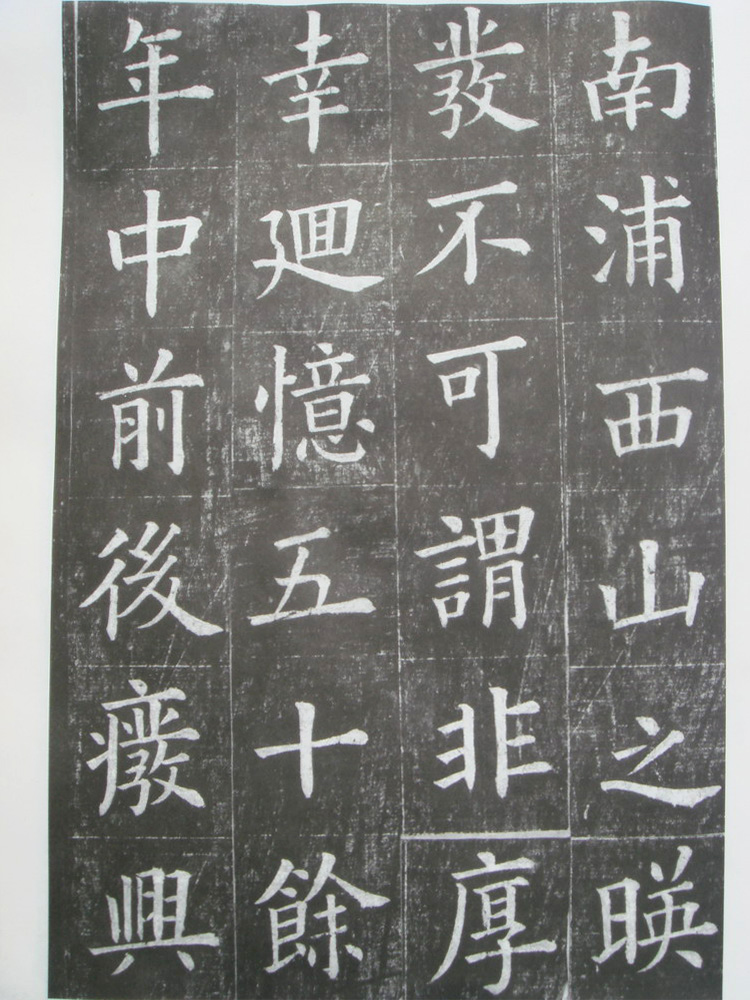 南浦西山之暎
發不可謂非厚
幸廻憶五十餘
年中前後癈興